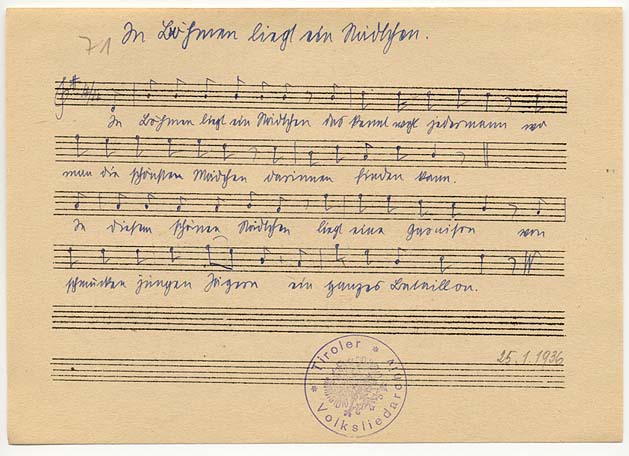 71
In Böhmen liegt ein Städtchen.
In Böhmen liegt ein Städtchen das kennt wohl jedermann wo
man die schönsten Mädchen darinnen finden kann.
In diesem schönen Städtchen liegt eine Garnison von
schmucken jungen Jägern ein ganzes Bataillon.
25.1.1936
* Tiroler * Volksliedarchiv